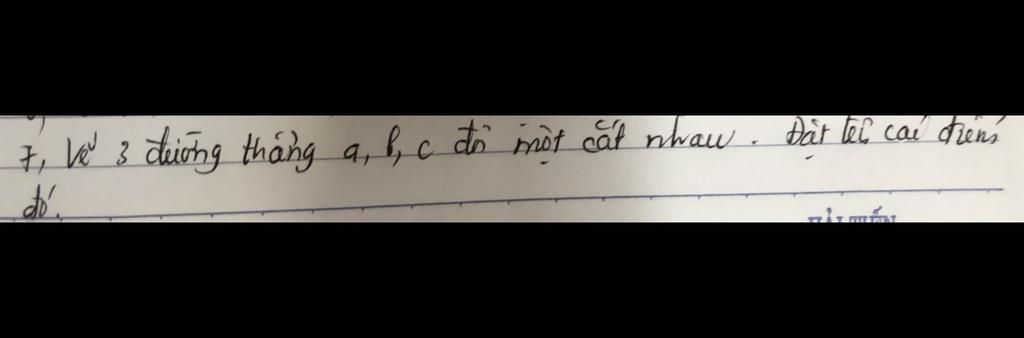 7, Vẽ 3 đường thẳng a, b, c đôi một cắt nhau. Đặt tên các điểm
đó.